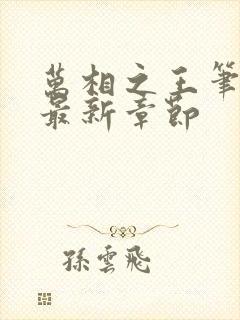 萬相之王筆
最新章節
孫雲飛